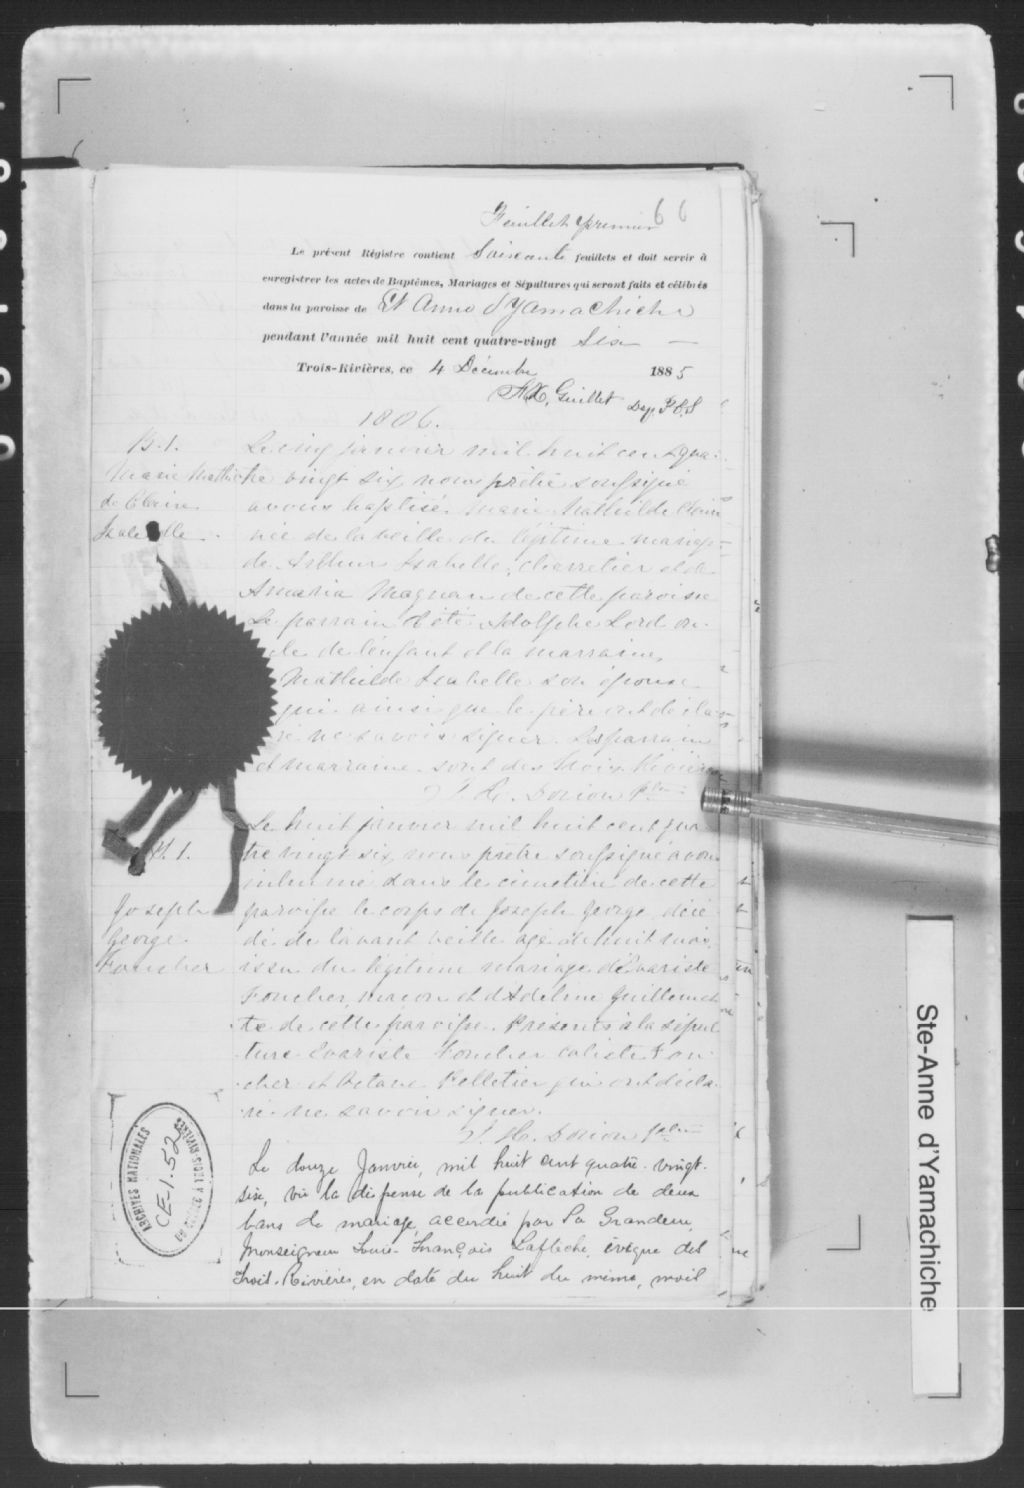 Feuillet premier 66
Le présent Régistre contient Soixante feuillets et doit servir à
enregistrer les actes de Baptêmes, Mariages et Sépultures qui seront faits et célébrés
dans la paroisse de St Anne d'Yamachiche
pendant l'année mil huit cent quatre-vingt Six
Trois-Rivières, ce 4 Décembre 1885
Guillet Dep. P.C.S
1886.
B. 1.
Marie Mathilde
de Claire
Isabelle
Le cinq janvier mil huit cent qua-
tre vingt six, nous prêtre soussigné
avons baptisé Marie Mathilde Claire
née de la veille du légitime mariage
de Arthur Isabelle, charretier et de
Amaria Magnan de cette paroisse
Le parrain a été Adolphe Lord on-
cle de l'enfant et la marraine
Mathilde Isabelle son épouse
qui ainsi que le père ont décla-
ré ne savoir signer. Les parrain
et marraine sont des Trois Rivières
Dorion Ptre
S. 1.
Joseph
George
Foucher
Le huit janvier mil huit cent qua
tre vingt six, nous prêtre soussigné avons
inhumé dans le cimetière de cette
paroisse le corps de Joseph George, décé
dé de l'avant veille agé de huit mois,
issu du légitime mariage d'Evariste
Foucher, maçon et d'Adeline Guillemet
te de cette paroisse. Présents à la sépul
ture Evariste Foucher Caliste Fou-
cher et Octave Pelletier qui ont décla-
ré ne savoir signer.
Dorion Ptre
Le douze Janvier, mil huit cent quatre-vingt-
six, vu la dispense de la publication de deux
bans de mariage accordée par Sa Grandeur,
Monseigneur Louis-François Laflèche, évêque des
Trois-Rivières, en date du huit du même mois
ARCHIVES NATIONALES
CE-1.52
Ste-Anne d'Yamachiche